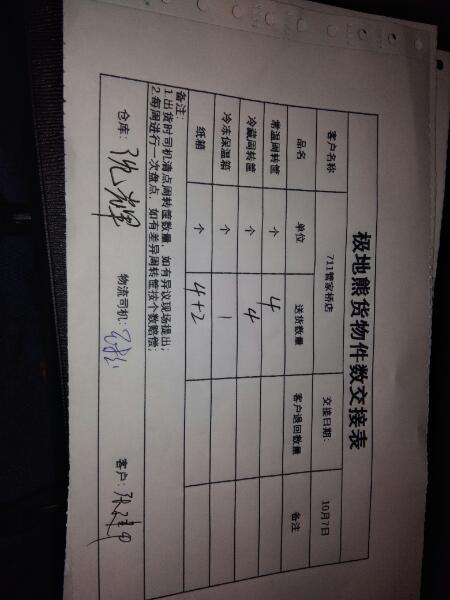 极地熊货物件数交接表
客户名称 711管家桥店 交接日期: 10月7日
品名 单位 送货数量 客户退回数量 备注
常温周转筐 个 4
冷藏周转筐 个 4
冷冻保温箱 个 1
纸箱 个 4+2
备注:
1.出货时司机清点周转筐数量,如有异议现场提出;
2.每周进行一次盘点,如有差异周转筐按个数赔偿;
仓库: 物流司机: 客户: